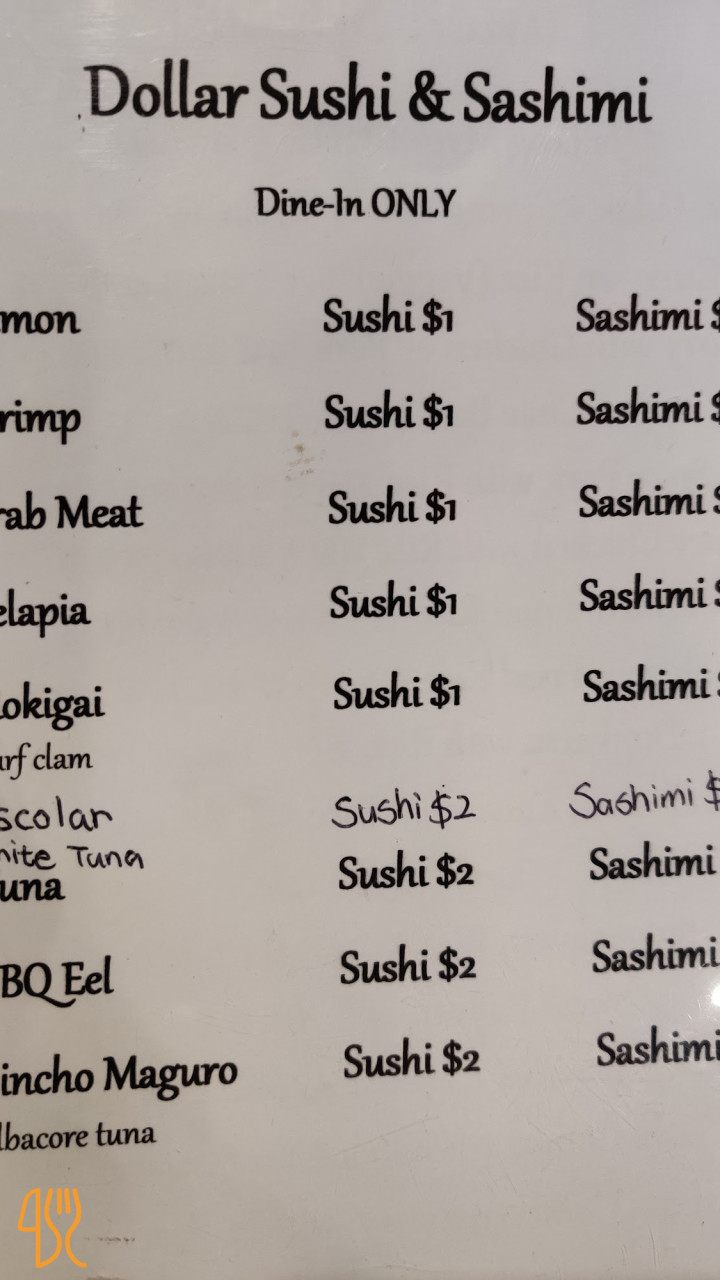 Dollar Sushi & Sashimi
Dine-In ONLY
mon Sushi $1 Sashimi $
rimp Sushi $1 Sashimi $
rab Meat Sushi $1 Sashimi $
elapia Sushi $1 Sashimi $
okigai Sushi $1 Sashimi $
urf clam
scolar Sushi $2 Sashimi $
hite Tuna
una Sushi $2 Sashimi
BQ Eel Sushi $2 Sashimi
incho Maguro Sushi $2 Sashimi
lbacore tuna